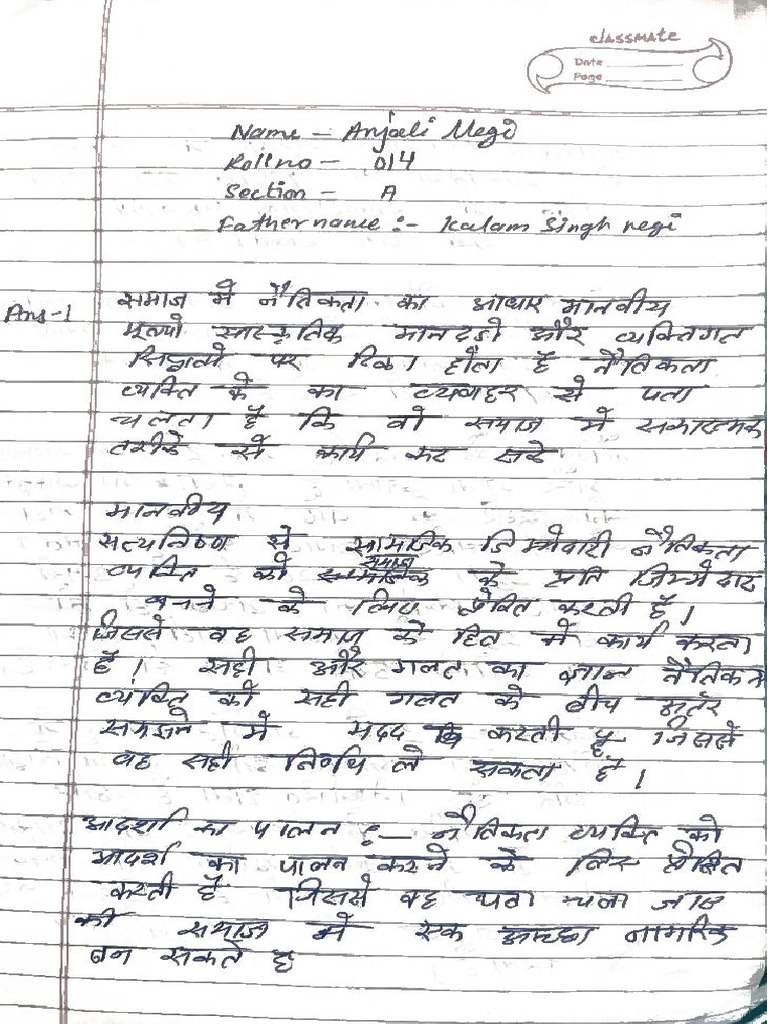 classmate
Date
Page
Name - Anjali Negi
Roll no - 014
Section - A
Father name :- Kalam Singh negi
Ans-1 समाज में नैतिकता का आधार मानवीय
मूल्यो सास्कृतिक मानदडो और व्यक्तिगत
सिद्धातो पर टिका होता है नैतिकता
व्यक्ति के का व्यवाहर से पता
चलता है कि वो समाज में सकारात्मक
तरीके से कार्य कर सके
मानवीय
सत्यनिष्ण से सामाजिक जिम्मेवारी नैतिकता
व्यक्ति को समाज के प्रति जिम्मेदार
बनने के लिए प्रेरित करती है।
जिससे वह समाज के हित में कार्य करता
है। सही और गलत का ज्ञान नैतिकता
व्यक्ति को सही गलत के बीच अतर
समझने में मदद करती है जिससे
वह सही निर्णय ले सकता है।
आदर्शा का पालन :- नैतिकता व्यक्ति को
आदर्श का पालन करने के लिए प्रेरित
करती है जिससे वह पता चला जाए
की समाज में एक अच्छा नागरिक
बन सकते है